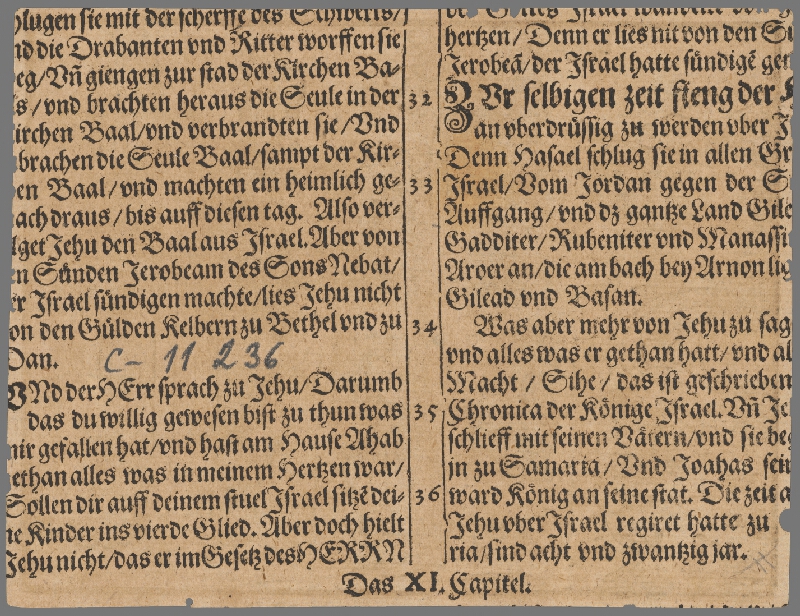 hlugen sie mit der scherffe des Schwerts/
nd die Drabanten vnd Ritter worffen sie
eg/Vñ giengen zur stad der Kirchen Ba-
s/vnd brachten heraus die Seule in der
irchen Baal/vnd verbrandten sie/Vnd
brachen die Seule Baal/sampt der Kir-
en Baal/vnd machten ein heimlich ge-
ach draus/bis auff diesen tag. Also ver-
lget Jehu den Baal aus Israel. Aber von
en Sünden Jerobeam des Sons Nebat/
er Israel sündigen machte/lies Jehu nicht
on den Gülden Kelbern zu Bethel vnd zu
Dan.
C- 11 236
VNd der HErr sprach zu Jehu/Darumb
das du willig gewesen bist zu thun was
mir gefallen hat/vnd hast am Hause Ahab
ethan alles was in meinem Hertzen war/
Sollen dir auff deinem stuel Israel sitzẽ dei-
ne Kinder ins vierde Glied. Aber doch hielt
Jehu nicht/das er im Gesetz des HERRN
der Gottes Israel wandelte von
hertzen/Denn er lies nit von den Su
Jerobeã/der Israel hatte sündigẽ ge
32 ZVr selbigen zeit fieng der H
an vberdrüssig zu werden vber J
Denn Hasael schlug sie in allen Gr
33 Israel/Vom Jordan gegen der S
Auffgang/vnd dz gantze Land Gile
Gadditer/Rubeniter vnd Manassi
Aroer an/die am bach bey Arnon lig
Gilead vnd Basan.
34 Was aber mehr von Jehu zu sag
vnd alles was er gethan hatt/vnd al
Macht/Sihe/das ist geschrieben
Chronica der Könige Israel. Vñ Je
35 schlieff mit seinen Vätern/vnd sie beg
jn zu Samaria/Vnd Joahas sein
36 ward König an seine stat. Die zeit a
Jehu vber Israel regiret hatte zu
ria/sind acht vnd zwantzig jar.
Das XI. Capitel.